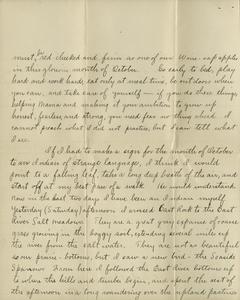 must, red cheeked and firm as one of our Wine-sap apples
in this glorious month of October. Go early to bed, play
hard and work hard, eat only at meal time, be out doors when
you can, and take care of yourself — if you do these things,
helping Mama and making it your ambition to grow up
honest, fearless and strong, you need fear no thing else. I
cannot preach what I did not practice, but I can tell what
I see.
If I had to make a sign for the month of October
to an Indian of strange language, I think I would
point to a falling leaf, take a long deep breath of the air, and
start off at my best pace of a walk. He would understand
now in the last two days I have been an Indian myself
Yesterday (Saturday) afternoon I went East to the East
River Salt meadows. They are a great grey expanse of coarse
grass growing in the boggy soil, extending several miles up
the river from the salt water. They are not as beautiful
as our prairie-bottoms, but I saw a new bird - the Seaside
Sparrow. From here I followed the East River bottoms up
to where the hills and timber begin, and spent the rest of
the afternoon in a long wandering over the upland pasture